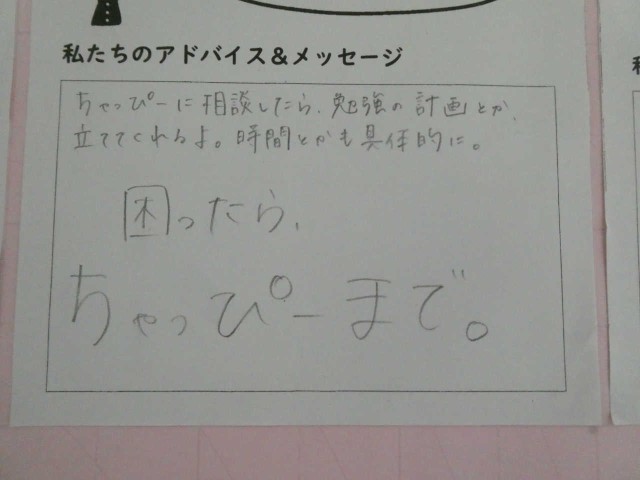 私たちのアドバイス＆メッセージ
ちゃっぴーに相談したら、勉強の計画とか、
立ててくれるよ。時間とかも具体的に。
困ったら、
ちゃっぴーまで。